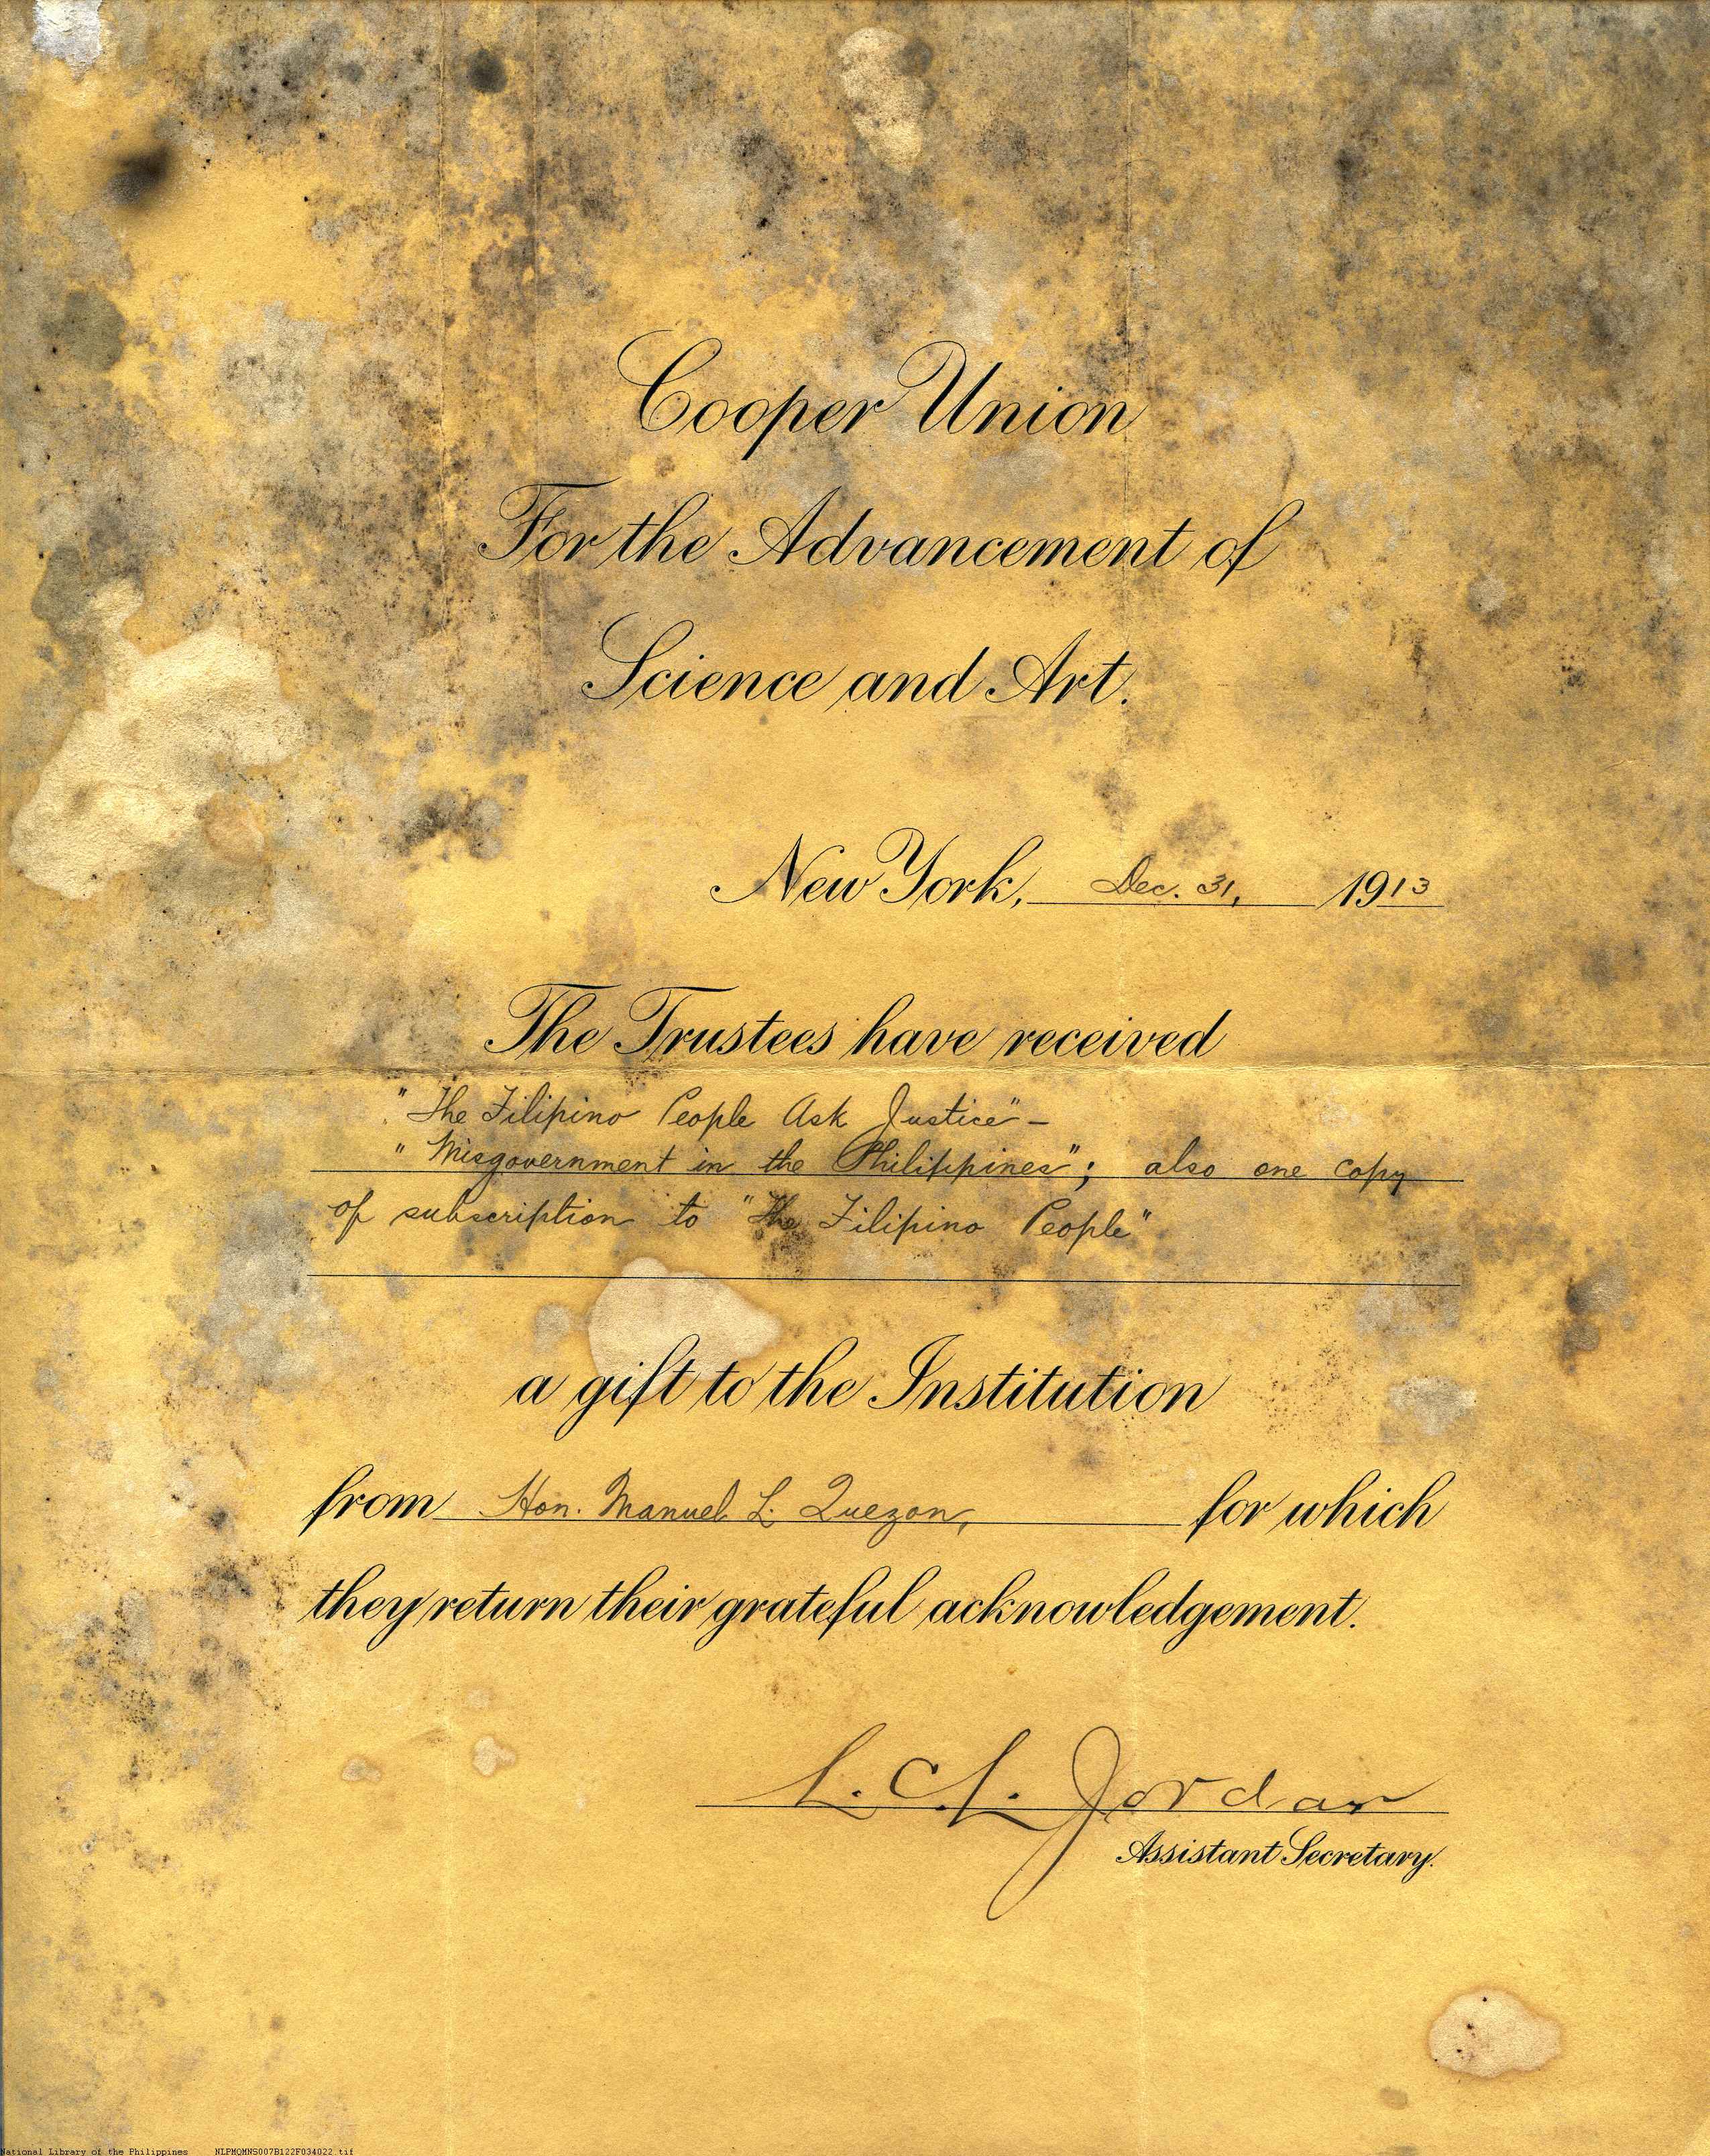 Cooper Union
For the Advancement of
Science and Art.
New York, Dec. 31, 1913
The Trustees have received
"The Filipino People Ask Justice" –
"Misgovernment in the Philippines"; also one copy
of subscription to "The Filipino People"
a gift to the Institution
from Hon. Manuel L. Quezon, for which
they return their grateful acknowledgement.
L. C. L. Jordan
Assistant Secretary.
National Library of the Philippines NLPMQMNS007B122F034022.tif